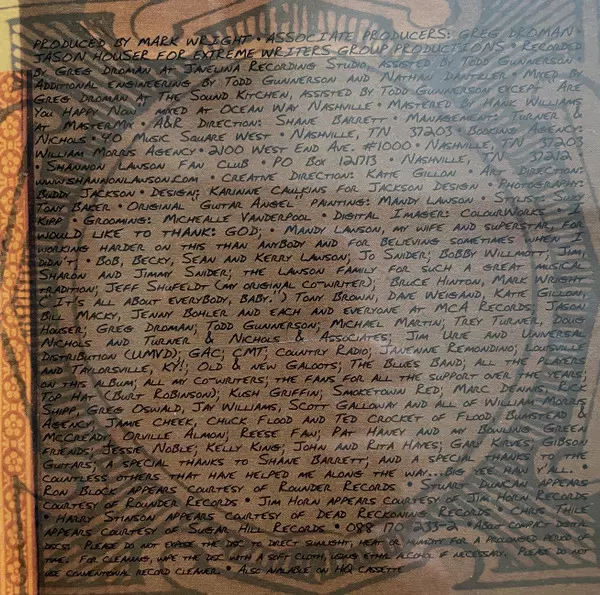 PRODUCED BY MARK WRIGHT • ASSOCIATE PRODUCERS: GREG DROMAN •
JASON HOUSER FOR EXTREME WRITERS GROUP PRODUCTIONS • RECORDED
BY GREG DROMAN AT JAVELINA RECORDING STUDIO, ASSISTED BY TODD GUNNERSON •
ADDITIONAL ENGINEERING BY TODD GUNNERSON AND NATHAN DANTZLER • MIXED BY
GREG DROMAN AT THE SOUND KITCHEN, ASSISTED BY TODD GUNNERSON EXCEPT "ARE
YOU HAPPY NOW" MIXED AT OCEAN WAY NASHVILLE • MASTERED BY HANK WILLIAMS
AT MASTERMIX • A&R DIRECTION: SHANE BARRETT • MANAGEMENT: TURNER &
NICHOLS • 40 MUSIC SQUARE WEST • NASHVILLE, TN 37203 • BOOKING AGENCY:
WILLIAM MORRIS AGENCY • 2100 WEST END AVE. #1000 • NASHVILLE, TN 37203
• SHANNON LAWSON FAN CLUB • PO BOX 121713 • NASHVILLE, TN 37212 •
WWW.SHANNONLAWSON.COM • CREATIVE DIRECTION: KATIE GILLON • ART DIRECTION:
BUDDY JACKSON • DESIGN: KARINNE CAULKINS FOR JACKSON DESIGN • PHOTOGRAPHY:
TONY BAKER • ORIGINAL "GUITAR ANGEL" PAINTING: MANDY LAWSON • STYLIST: SUZY
KIPP • GROOMING: MICHEALLE VANDERPOOL • DIGITAL IMAGER: COLOURWORKS • I
WOULD LIKE TO THANK: GOD; • MANDY LAWSON, MY WIFE AND SUPERSTAR, FOR
WORKING HARDER ON THIS THAN ANYBODY AND FOR BELIEVING SOMETIMES WHEN I
DIDN'T • BOB, BECKY, SEAN AND KERRY LAWSON; JO SNIDER; BOBBY WILLMOTT; JIM,
SHARON AND JIMMY SNIDER; THE LAWSON FAMILY FOR SUCH A GREAT MUSICAL
TRADITION; JEFF SHUFELDT (MY ORIGINAL CO-WRITER); BRUCE HINTON, MARK WRIGHT
("IT'S ALL ABOUT EVERYBODY, BABY.") TONY BROWN, DAVE WEIGAND, KATIE GILLON,
BILL MACKY, JENNY BOHLER AND EACH AND EVERYONE AT MCA RECORDS; JASON
HOUSER; GREG DROMAN; TODD GUNNERSON; MICHAEL MARTIN; TREY TURNER, DOUG
NICHOLS AND TURNER & NICHOLS & ASSOCIATES; JIM URIE AND UNIVERSAL
DISTRIBUTION (UMVD); GAC; CMT; COUNTRY RADIO; JANENNE REMONDINO; LOUISVILLE
AND TAYLORSVILLE, KY!; OLD & NEW GALOOTS; THE BLUES BAND; ALL THE PLAYERS
ON THIS ALBUM; ALL MY CO-WRITERS; THE FANS FOR ALL THE SUPPORT OVER THE YEARS;
TOP HAT (BURT ROBINSON); KUSH GRIFFIN; SMOKETOWN RED; MARC DENNIS, RICK
SHIPP, GREG OSWALD, JAY WILLIAMS, SCOTT GALLOWAY AND ALL OF WILLIAM MORRIS
AGENCY; JAMIE CHEEK, CHUCK FLOOD AND TED CROCKET OF FLOOD, BUMSTEAD &
MCCREADY; ORVILLE ALMON; REESE FAN; PAT HANEY AND MY BOWLING GREEN
FRIENDS; JESSIE NOBLE; KELLY KING; JOHN AND RITA HAYES; GARY KIRVES; GIBSON
GUITARS; A SPECIAL THANKS TO SHANE BARRETT; AND A SPECIAL THANKS TO THE
COUNTLESS OTHERS THAT HAVE HELPED ME ALONG THE WAY...BIG YEE HAW Y'ALL. •
RON BLOCK APPEARS COURTESY OF ROUNDER RECORDS • STUART DUNCAN APPEARS
COURTESY OF ROUNDER RECORDS • JIM HORN APPEARS COURTESY OF JIM HORN RECORDS
• HARRY STINSON APPEARS COURTESY OF DEAD RECKONING RECORDS • CHRIS THILE
APPEARS COURTESY OF SUGAR HILL RECORDS • 088 170 233-2 • ABOUT COMPACT DIGITAL
DISCS: PLEASE DO NOT EXPOSE THE DISC TO DIRECT SUNLIGHT, HEAT OR HUMIDITY FOR A PROLONGED PERIOD OF
TIME. FOR CLEANING, WIPE THE DISC WITH A SOFT CLOTH, USING ETHYL ALCOHOL IF NECESSARY. PLEASE DO NOT
USE CONVENTIONAL RECORD CLEANER. • ALSO AVAILABLE ON HIQ CASSETTE